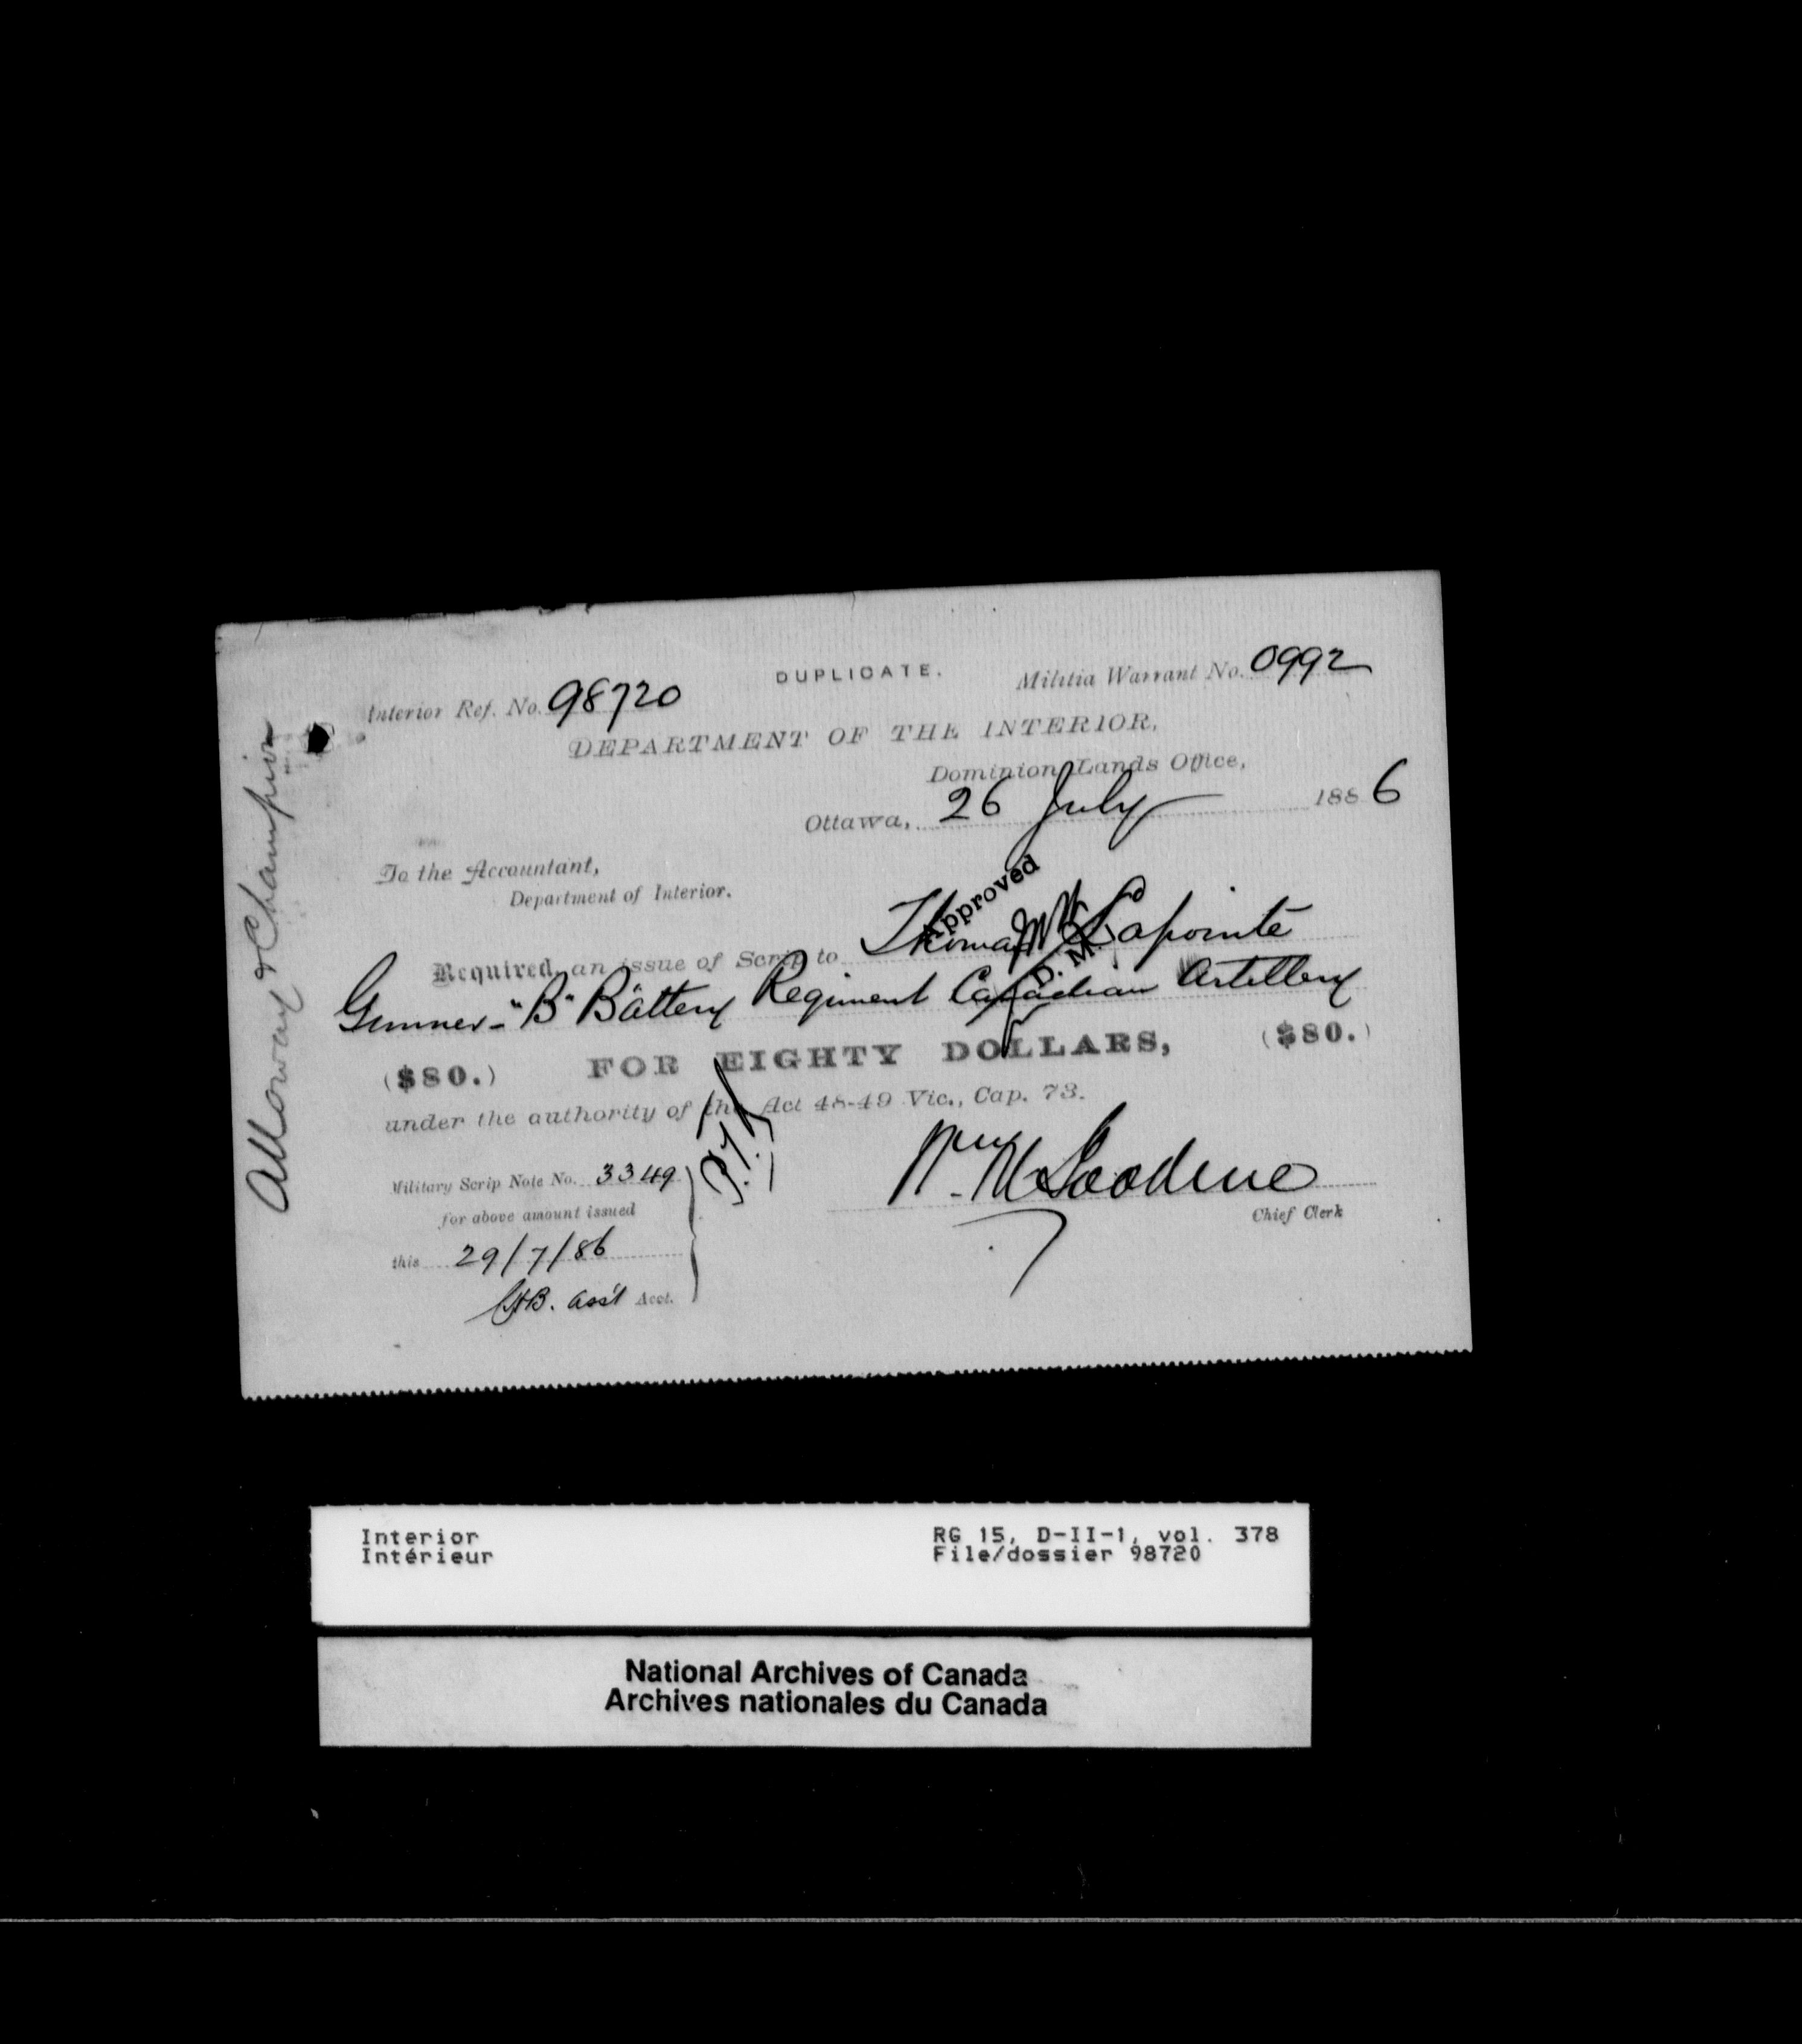 DUPLICATE.
Interior Ref. No. 98720
Militia Warrant No. 0992
DEPARTMENT OF THE INTERIOR,
Dominion Lands Office,
Ottawa, 26 July 1886
To the Accountant,
Department of Interior.
Approved
Required an issue of Scrip to Thomas Lapointe
D. M.
Gunner - "B" Battery Regiment Canadian Artillery
($80.) FOR EIGHTY DOLLARS, ($80.)
under the authority of the Act 48-49 Vic., Cap. 73.
Military Scrip Note No. 3349
for above amount issued
this 29/7/86
Ass't Acct.
Chief Clerk
Alloway & Champion
Interior
Intérieur
RG 15, D-II-1, vol. 378
File/dossier 98720
National Archives of Canada
Archives nationales du Canada